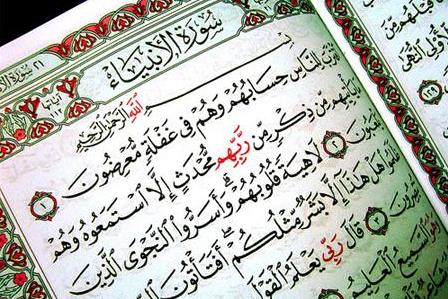 سُورَةُ الْأَنْبِيَاءِ
بِسْمِ اللَّهِ الرَّحْمَٰنِ الرَّحِيمِ
لِلنَّاسِ حِسَابُهُمْ وَهُمْ فِي غَفْلَةٍ مُعْرِضُونَ ١
يَأْتِيهِمْ مِنْ ذِكْرٍ مِنْ رَبِّهِمْ مُحْدَثٍ إِلَّا اسْتَمَعُوهُ وَهُمْ
٢ لَاهِيَةً قُلُوبُهُمْ وَأَسَرُّوا النَّجْوَى الَّذِينَ
هَلْ هَٰذَا إِلَّا بَشَرٌ مِثْلُكُمْ أَفَتَأْتُونَ
٣ قَالَ رَبِّي يَعْلَمُ الْقَوْلَ
السَّمِيعُ الْعَلِيمُ